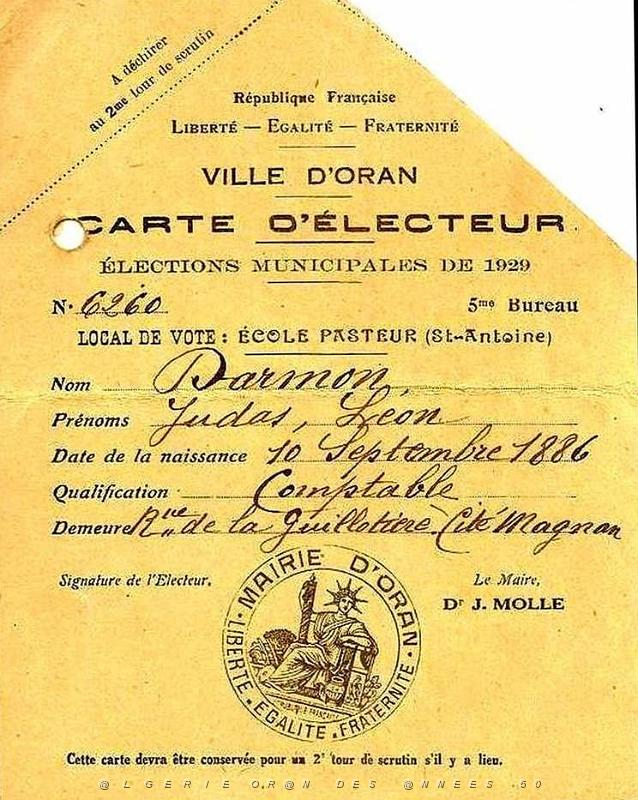 A déchirer
au 2me tour de scrutin
République Française
LIBERTÉ — EGALITÉ — FRATERNITÉ
VILLE D'ORAN
CARTE D'ÉLECTEUR
ÉLECTIONS MUNICIPALES DE 1929
N· 6260 5me Bureau
LOCAL DE VOTE : ÉCOLE PASTEUR (St-Antoine)
Nom Darmon
Prénoms Judas, Léon
Date de la naissance 10 Septembre 1886
Qualification Comptable
Demeure Rue de la Guillotière Cité Magnan
Signature de l'Electeur. Le Maire,
Dr J. MOLLE
MAIRIE D'ORAN
LIBERTÉ · EGALITÉ · FRATERNITÉ
Cette carte devra être conservée pour un 2e tour de scrutin s'il y a lieu.
@LGERIE OR@N DES @NNEES 50